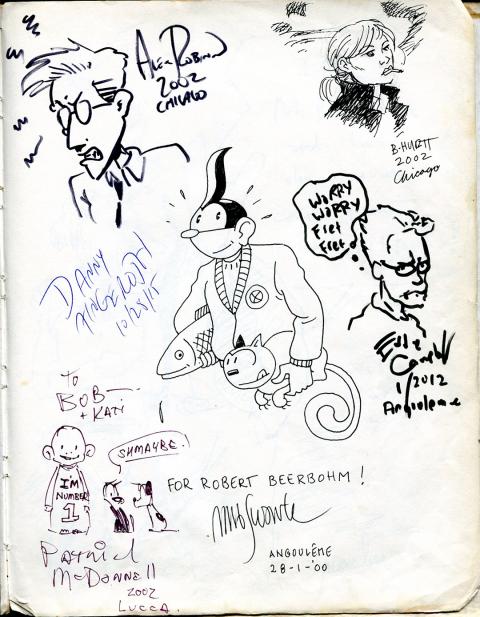 ALEX ROBINSON
2002
CHICAGO
B. HURTT
2002
Chicago
WORRY
WORRY
Fret
Fret
DANNY
FINGEROTH
10/25/15
Eddie
Campbell
1/2012
Angouleme
To
BOB
+ KATI
SHMAYBE!
I'M
NUMBER
1
FOR ROBERT BEERBOHM!
ANGOULÊME
28-1-'00
PATRICK
McDONNELL
2002
LUCCA.